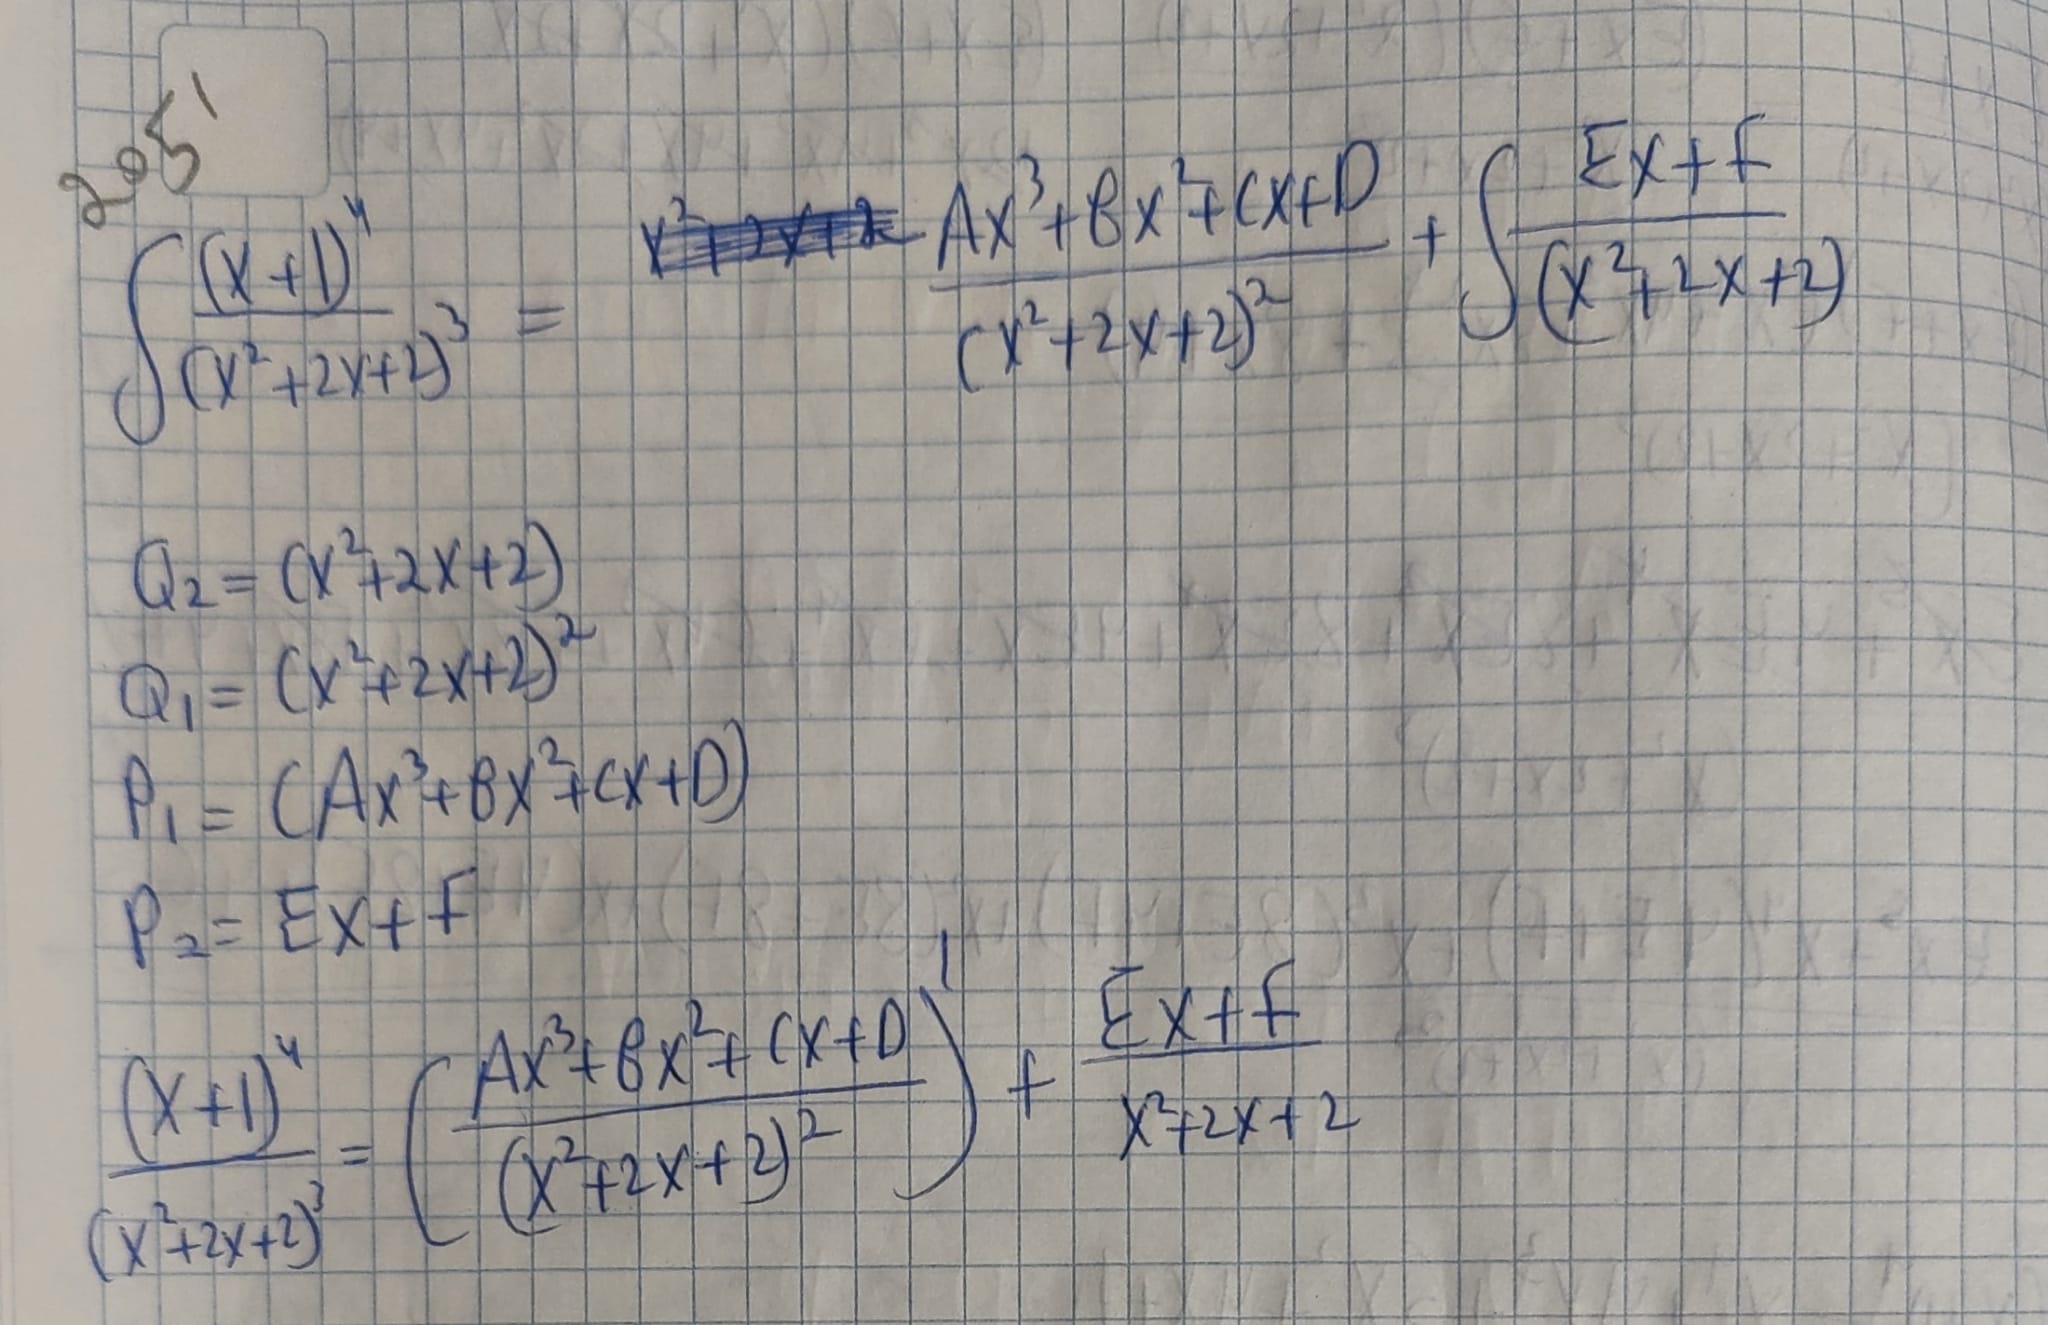 205'
∫ (x+1)⁴/(x²+2x+2)³ = Ax³+Bx²+Cx+D/(x²+2x+2)² + ∫ Ex+F/(x²+2x+2)
Q₂= (x²+2x+2)
Q₁= (x²+2x+2)²
P₁= (Ax³+Bx²+Cx+D)
P₂= Ex+F
(x+1)⁴/(x²+2x+2)³ = (Ax³+Bx²+Cx+D/(x²+2x+2)²)' + Ex+F/x²+2x+2